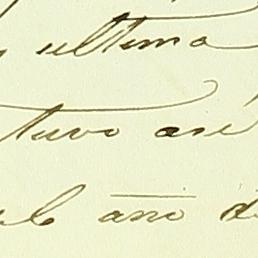 y ultima
tuvo asi
el año de